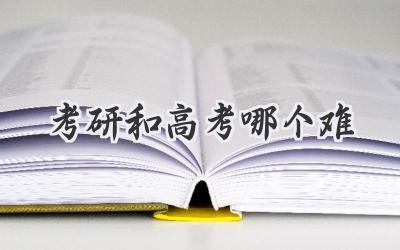 考研和高考哪个难